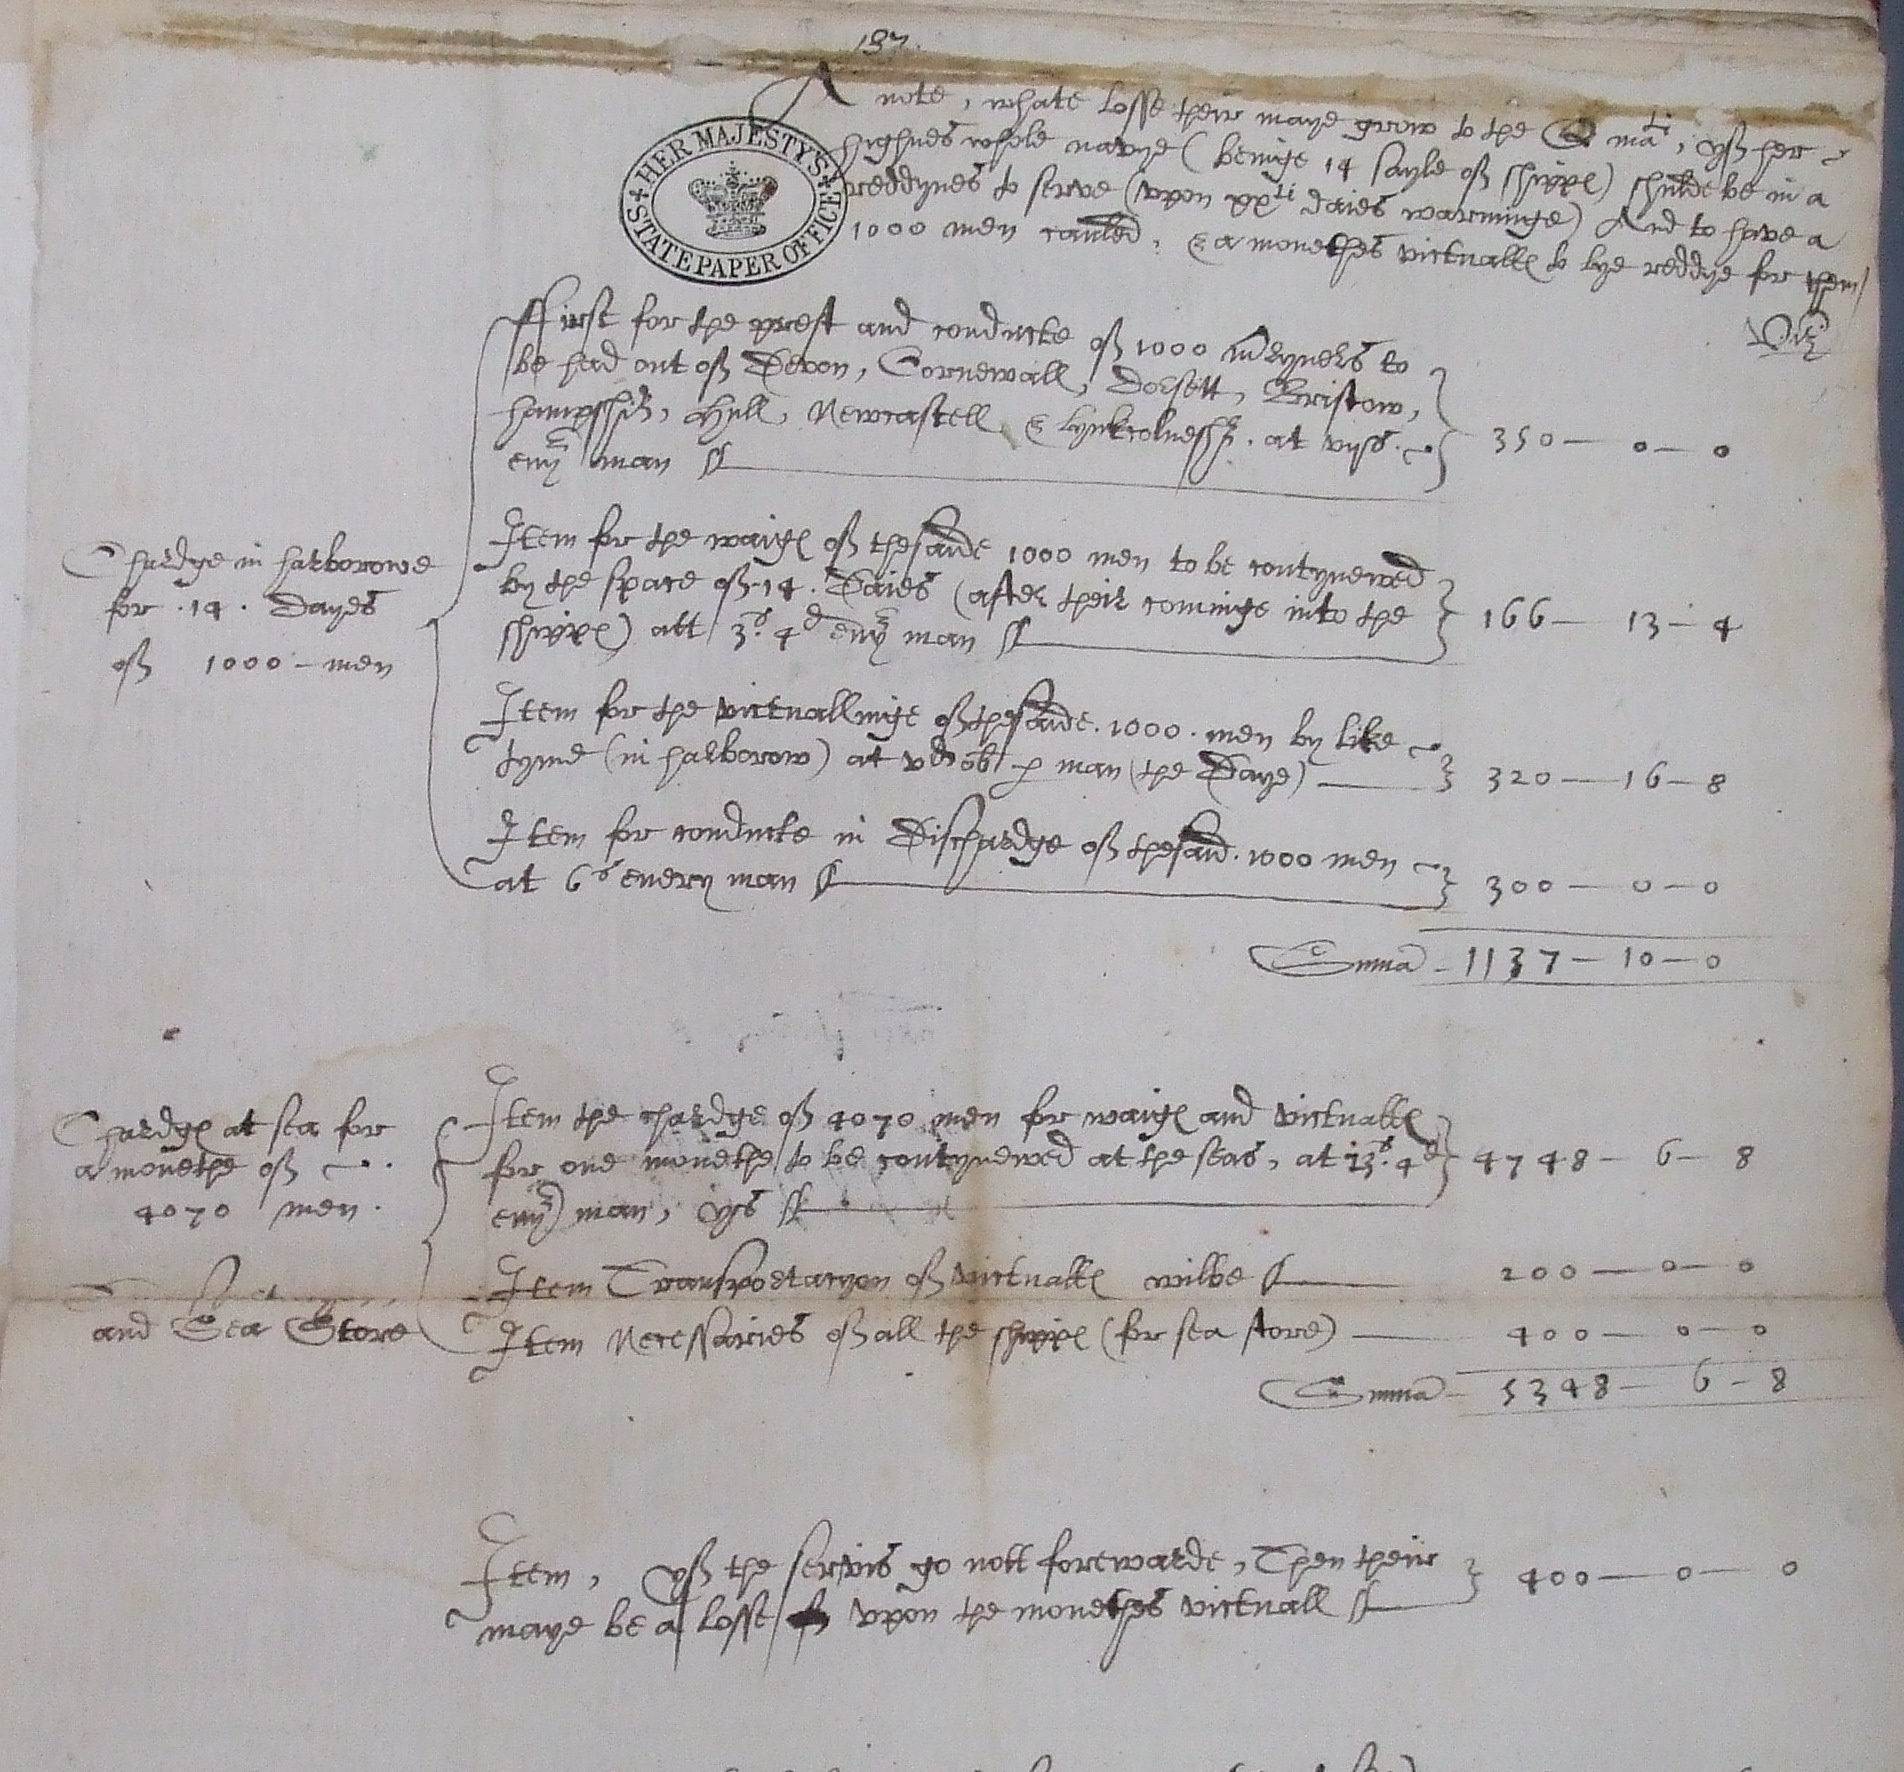 137.
A note, whate losse their maye grow to the Q ma^ti, yff her
highnes whole navye (beinge 14 sayle off shippes) shulde be in a
reddynes to serve (vpon xx^ti daies warninge) And to have a
1000 men caulled, & a monethes victualles to lye reddye for them /
Viz
HER MAJESTY'S
STATE PAPER OFFICE
Chardge in harborowe
for .14. Dayes
off 1000 - men
First for the prest and conducte off 1000 maryners to
be had out off Devon, Cornewall, Dorsett, Bristow,
hampshire, Hull, Newcastell & lynkcolneshire. at vijs.
euery man 350 — 0 — 0
Item for the waiges off thesaide 1000 men to be contynewed
by the space off .14. Daies (after their cominge into the
shippes) att 3^s. 4^d euery man 166 — 13 — 4
Item for the victuallinge off thesaide .1000. men by like
tyme (in harborow) at v^d ob p man (the Daye) 320 — 16 — 8
Item for conducte in Dischardge off thesaid .1000 men
at 6^s euery man 300 — 0 — 0
Summa - 1137 — 10 — 0
Chardges at sea for
a monethe off
4070 men.
and Sea Store
Item the chardge off 4070 men for waiges and victualles
for one monethe to be contynewed at the seas, at 23^s. 4^d
euery man, yes 4748 — 6 — 8
Item Transportacyon off victualles wilbe 200 — 0 — 0
Item Necessaries off all the shippes (for sea store) 400 — 0 — 0
Summa - 5348 — 6 — 8
Item, yff the servis go nott forewarde, Then their
maye be a losse vpon the monethes victuall 400 — 0 — 0